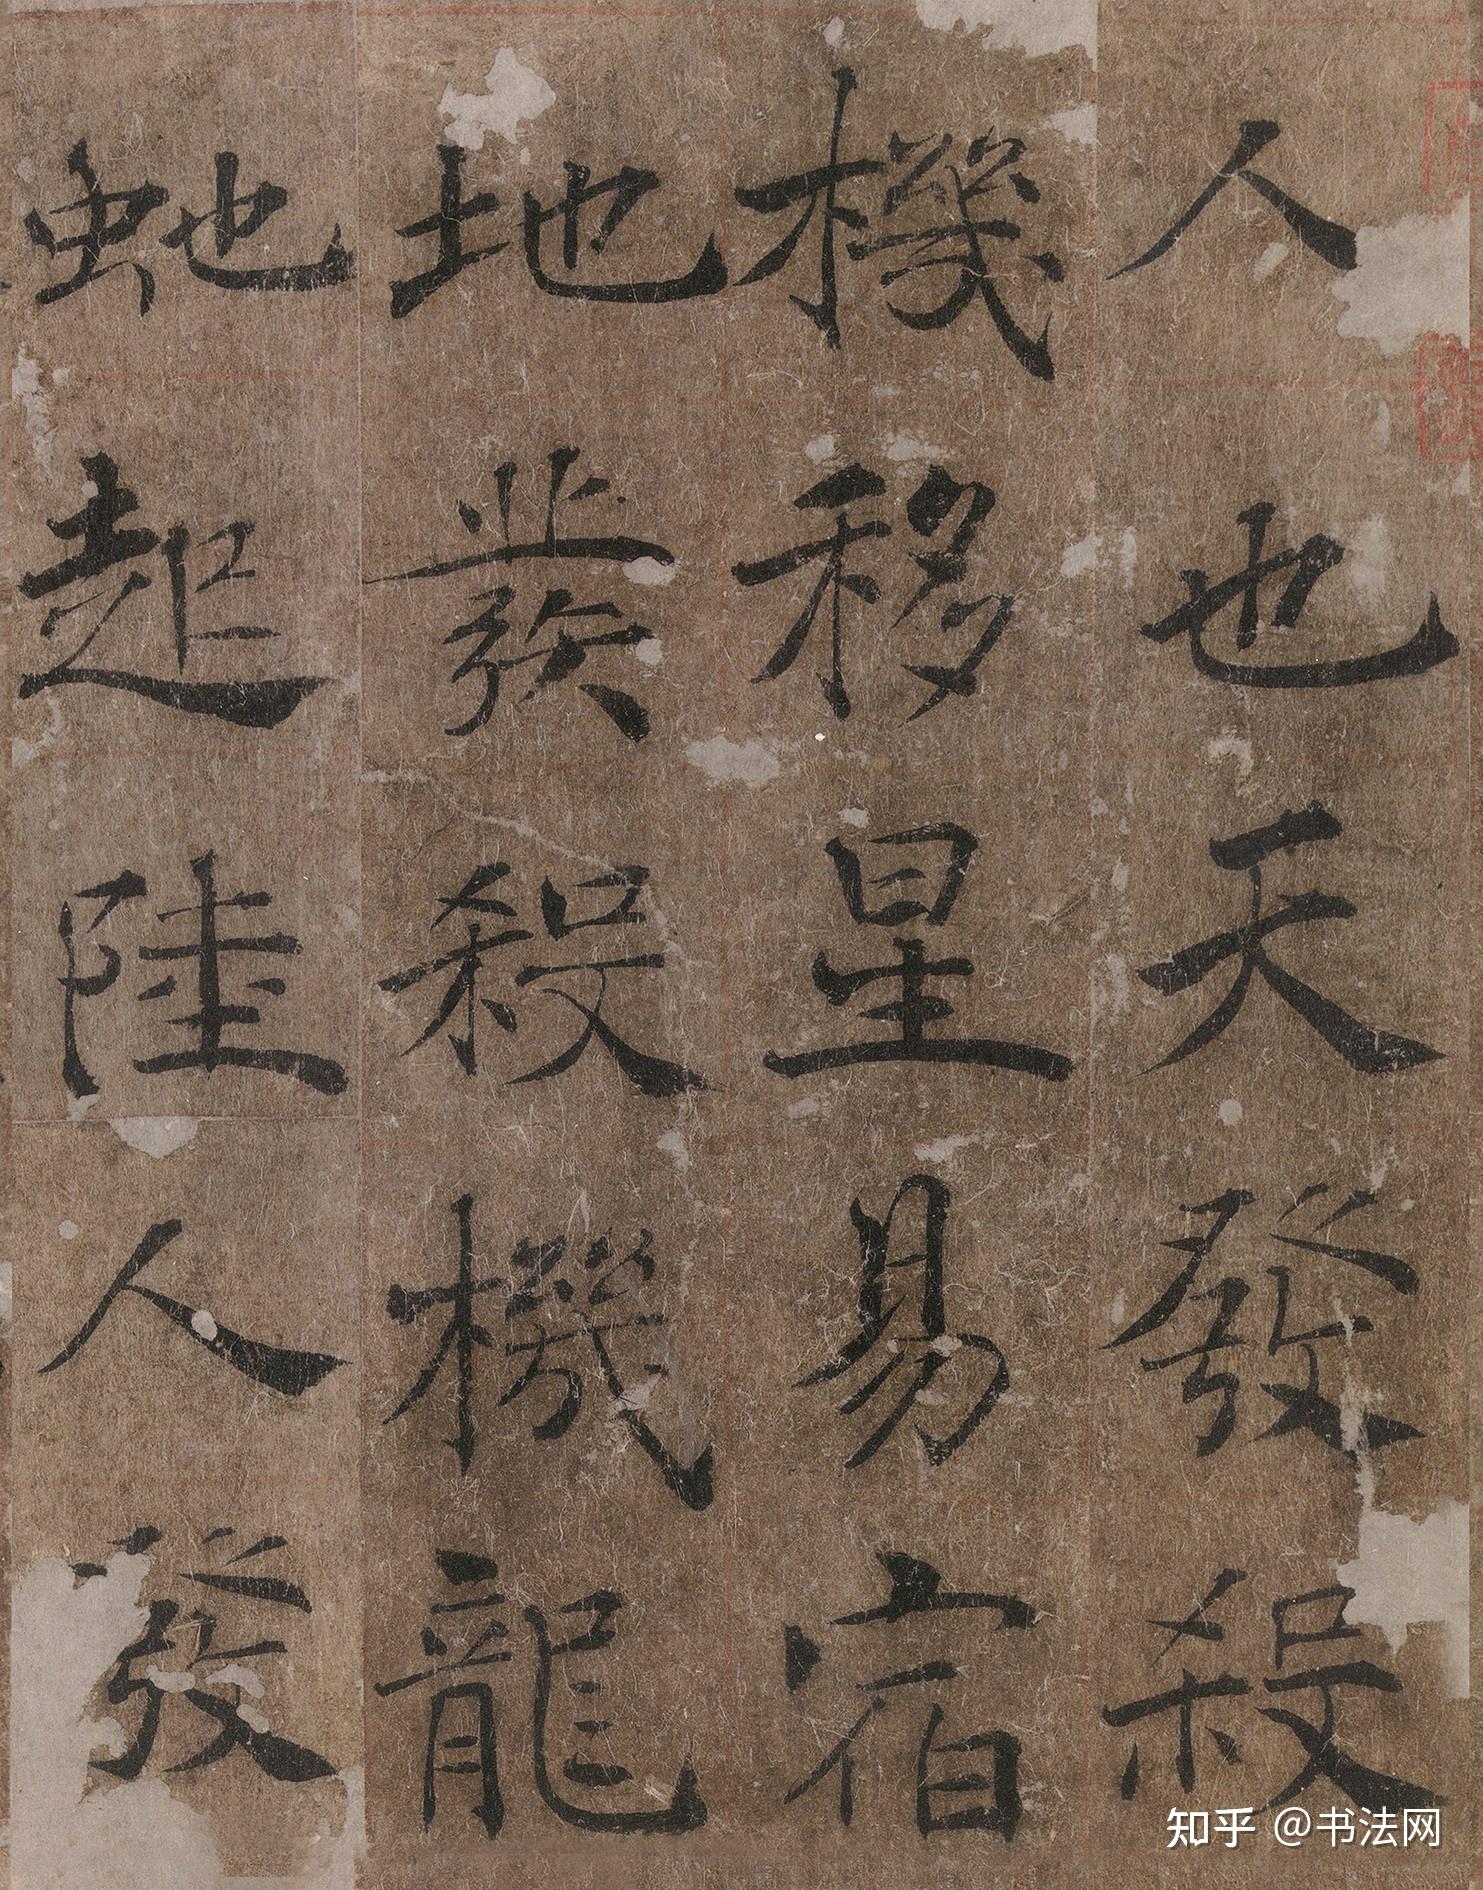 人也天發殺
機移星易宿
地發殺機龍
虵起陸人發
知乎 @书法网